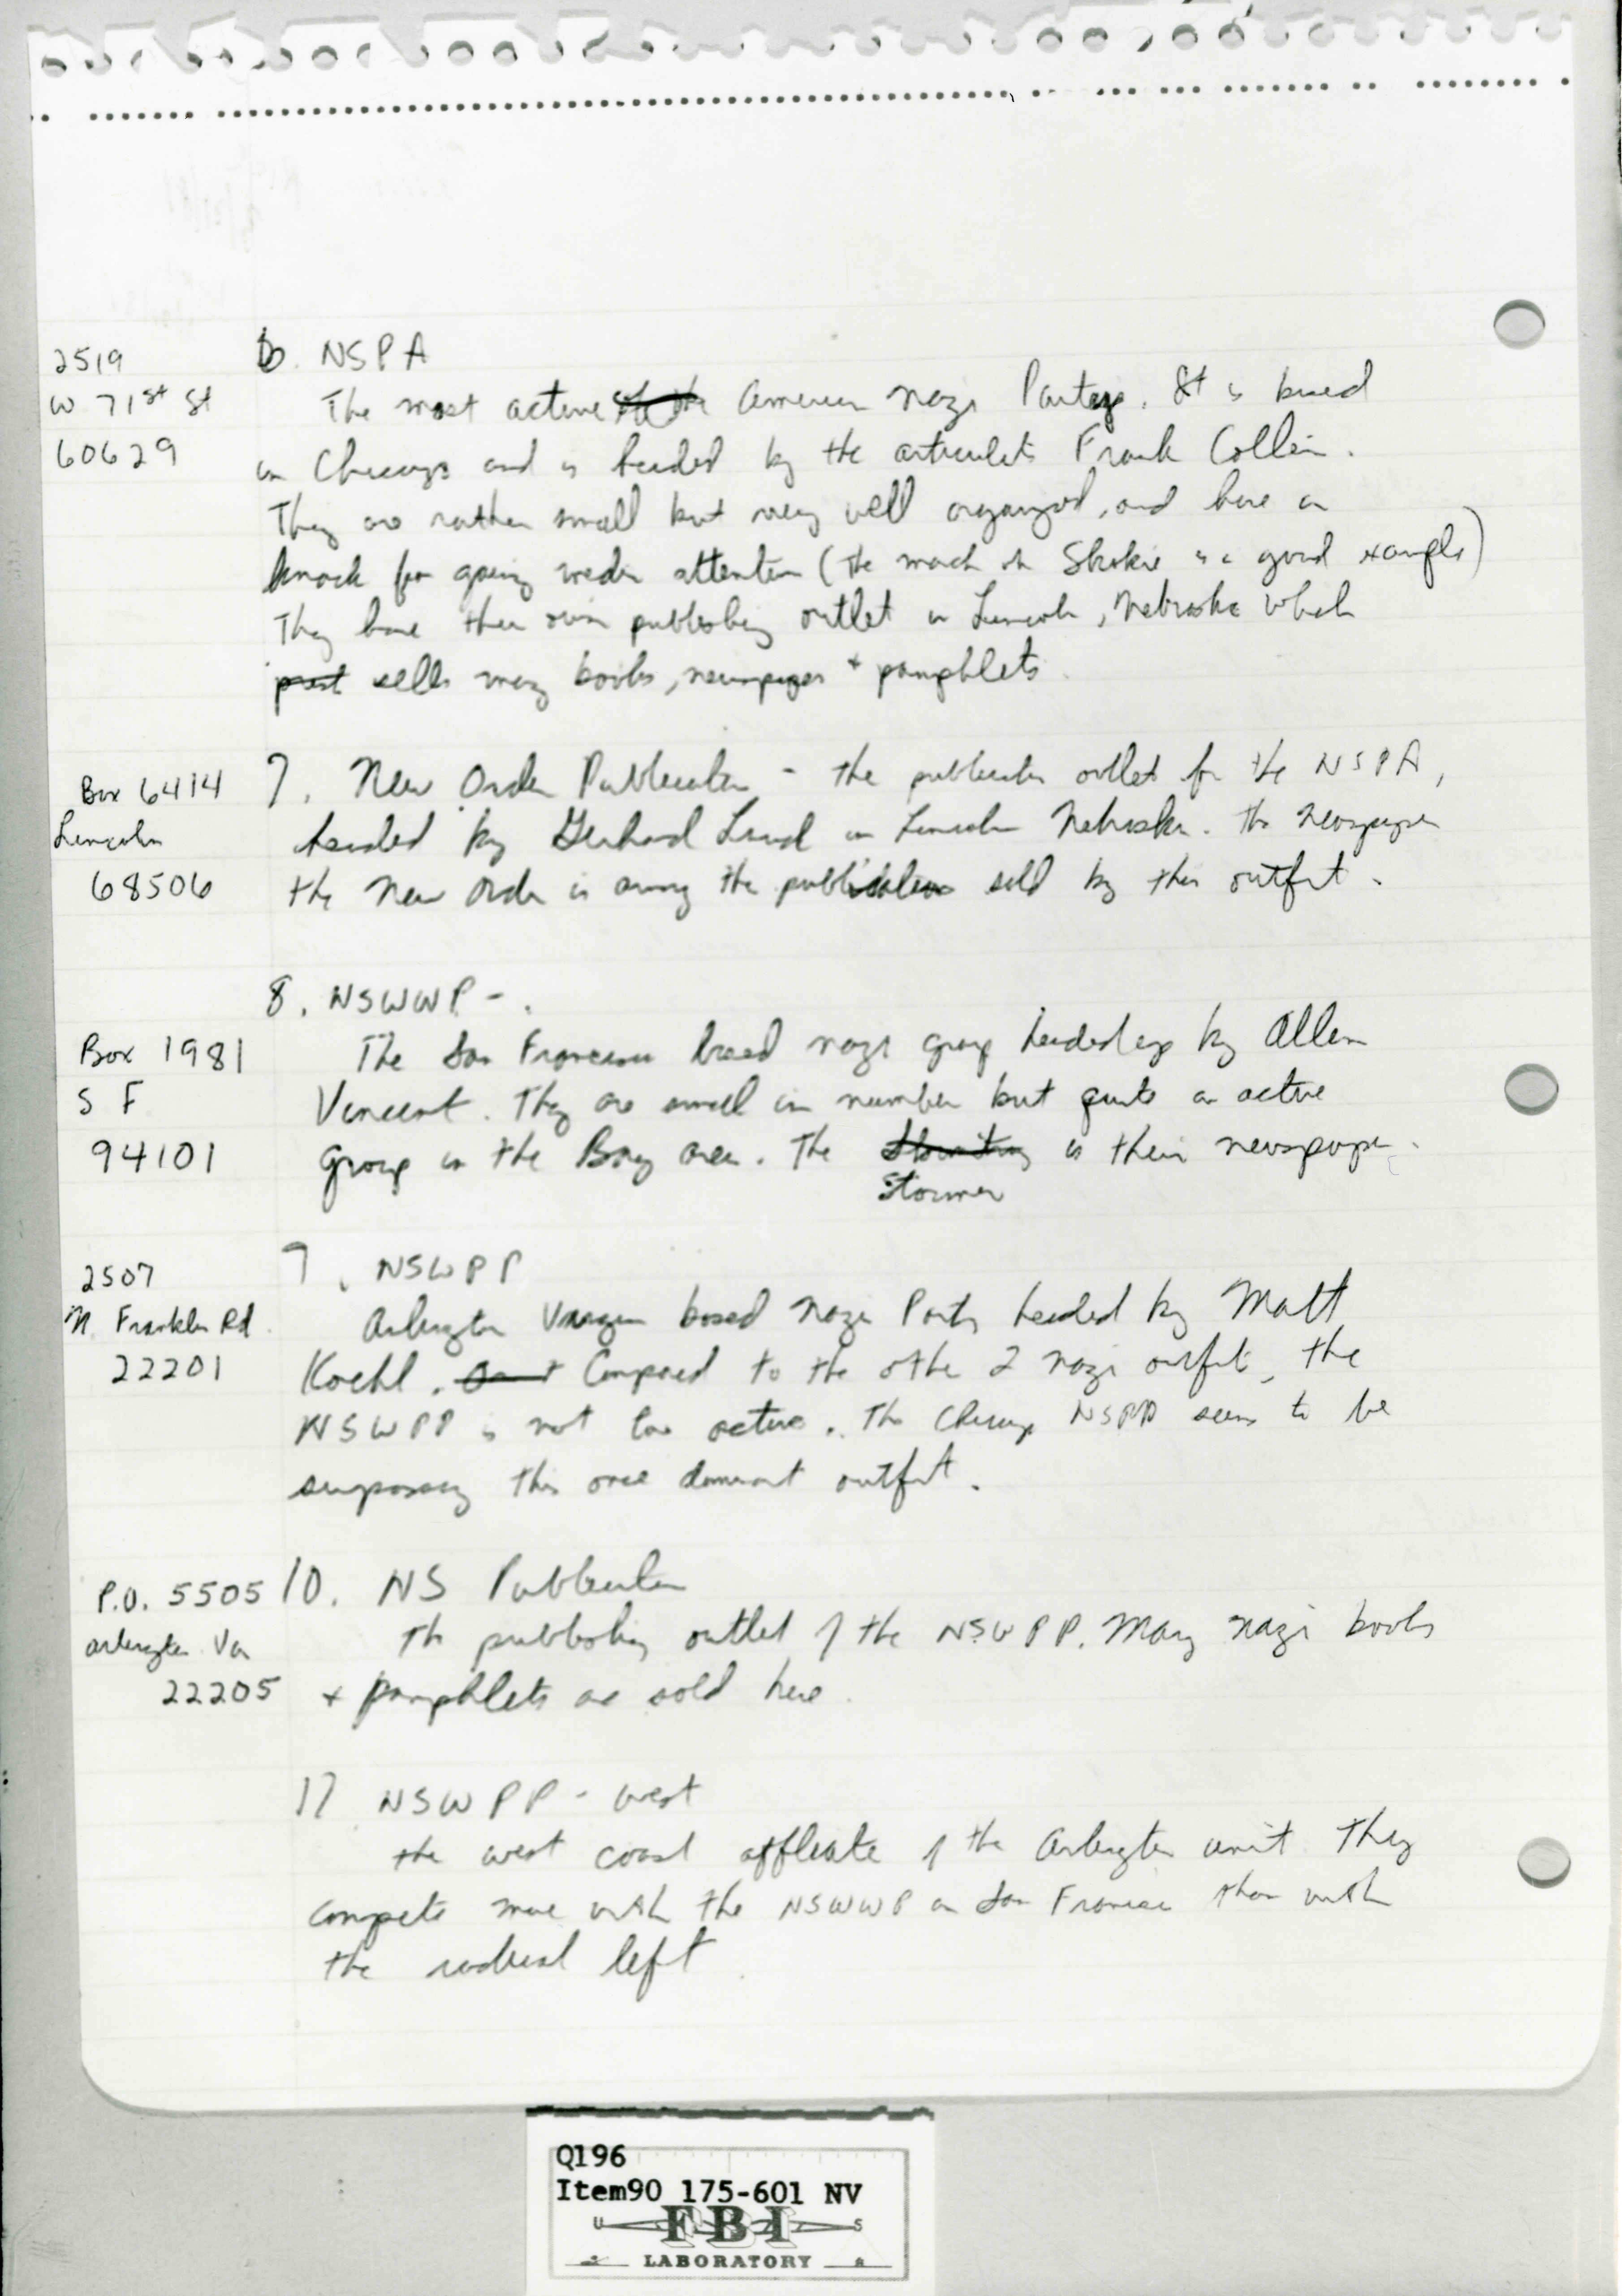 2519
W 71st St
60629
6. NSPA
The most active of the American Nazi Party. It is based
in Chicago and is headed by the articulate Frank Collin.
They are rather small but very well organized, and have a
knack for going media attention (the march in Skokie is a good example)
They have their own publishing outlet in Lincoln, Nebraska which
print sells many books, newspapers + pamphlets.
Box 6414
Lincoln
68506
7. New Order Publication - the publication outlet for the NSPA,
headed by Gerhard Laud in Lincoln Nebraska. The newspaper
the New Order is among the publications sold by this outfit.
8. NSWWP -.
Box 1981
S F
94101
The San Francisco based nazi group headed up by Allen
Vincent. They are small in number but quite an active
group in the Bay area. The is their newspaper.
Stormer
2507
N. Franklin Rd
22201
9. NSWPP
Arlington Virginia based Nazi Party headed by Matt
Koehl. Compared to the othe 2 nazi outfit, the
NSWPP is not too active. The Chicago NSPA seems to be
surpassing this once dominant outfit.
P.O. 5505
Arlington Va
22205
10. NS Publication
The publishing outlet of the NSWPP. Many nazi books
+ pamphlets are sold here.
11 NSWPP - West
the west coast affliate of the Arlington unit. They
compete more with the NSWWP in San Francisco than with
the radical left.
Q196
Item90 175-601 NV
U S
FBI
LABORATORY